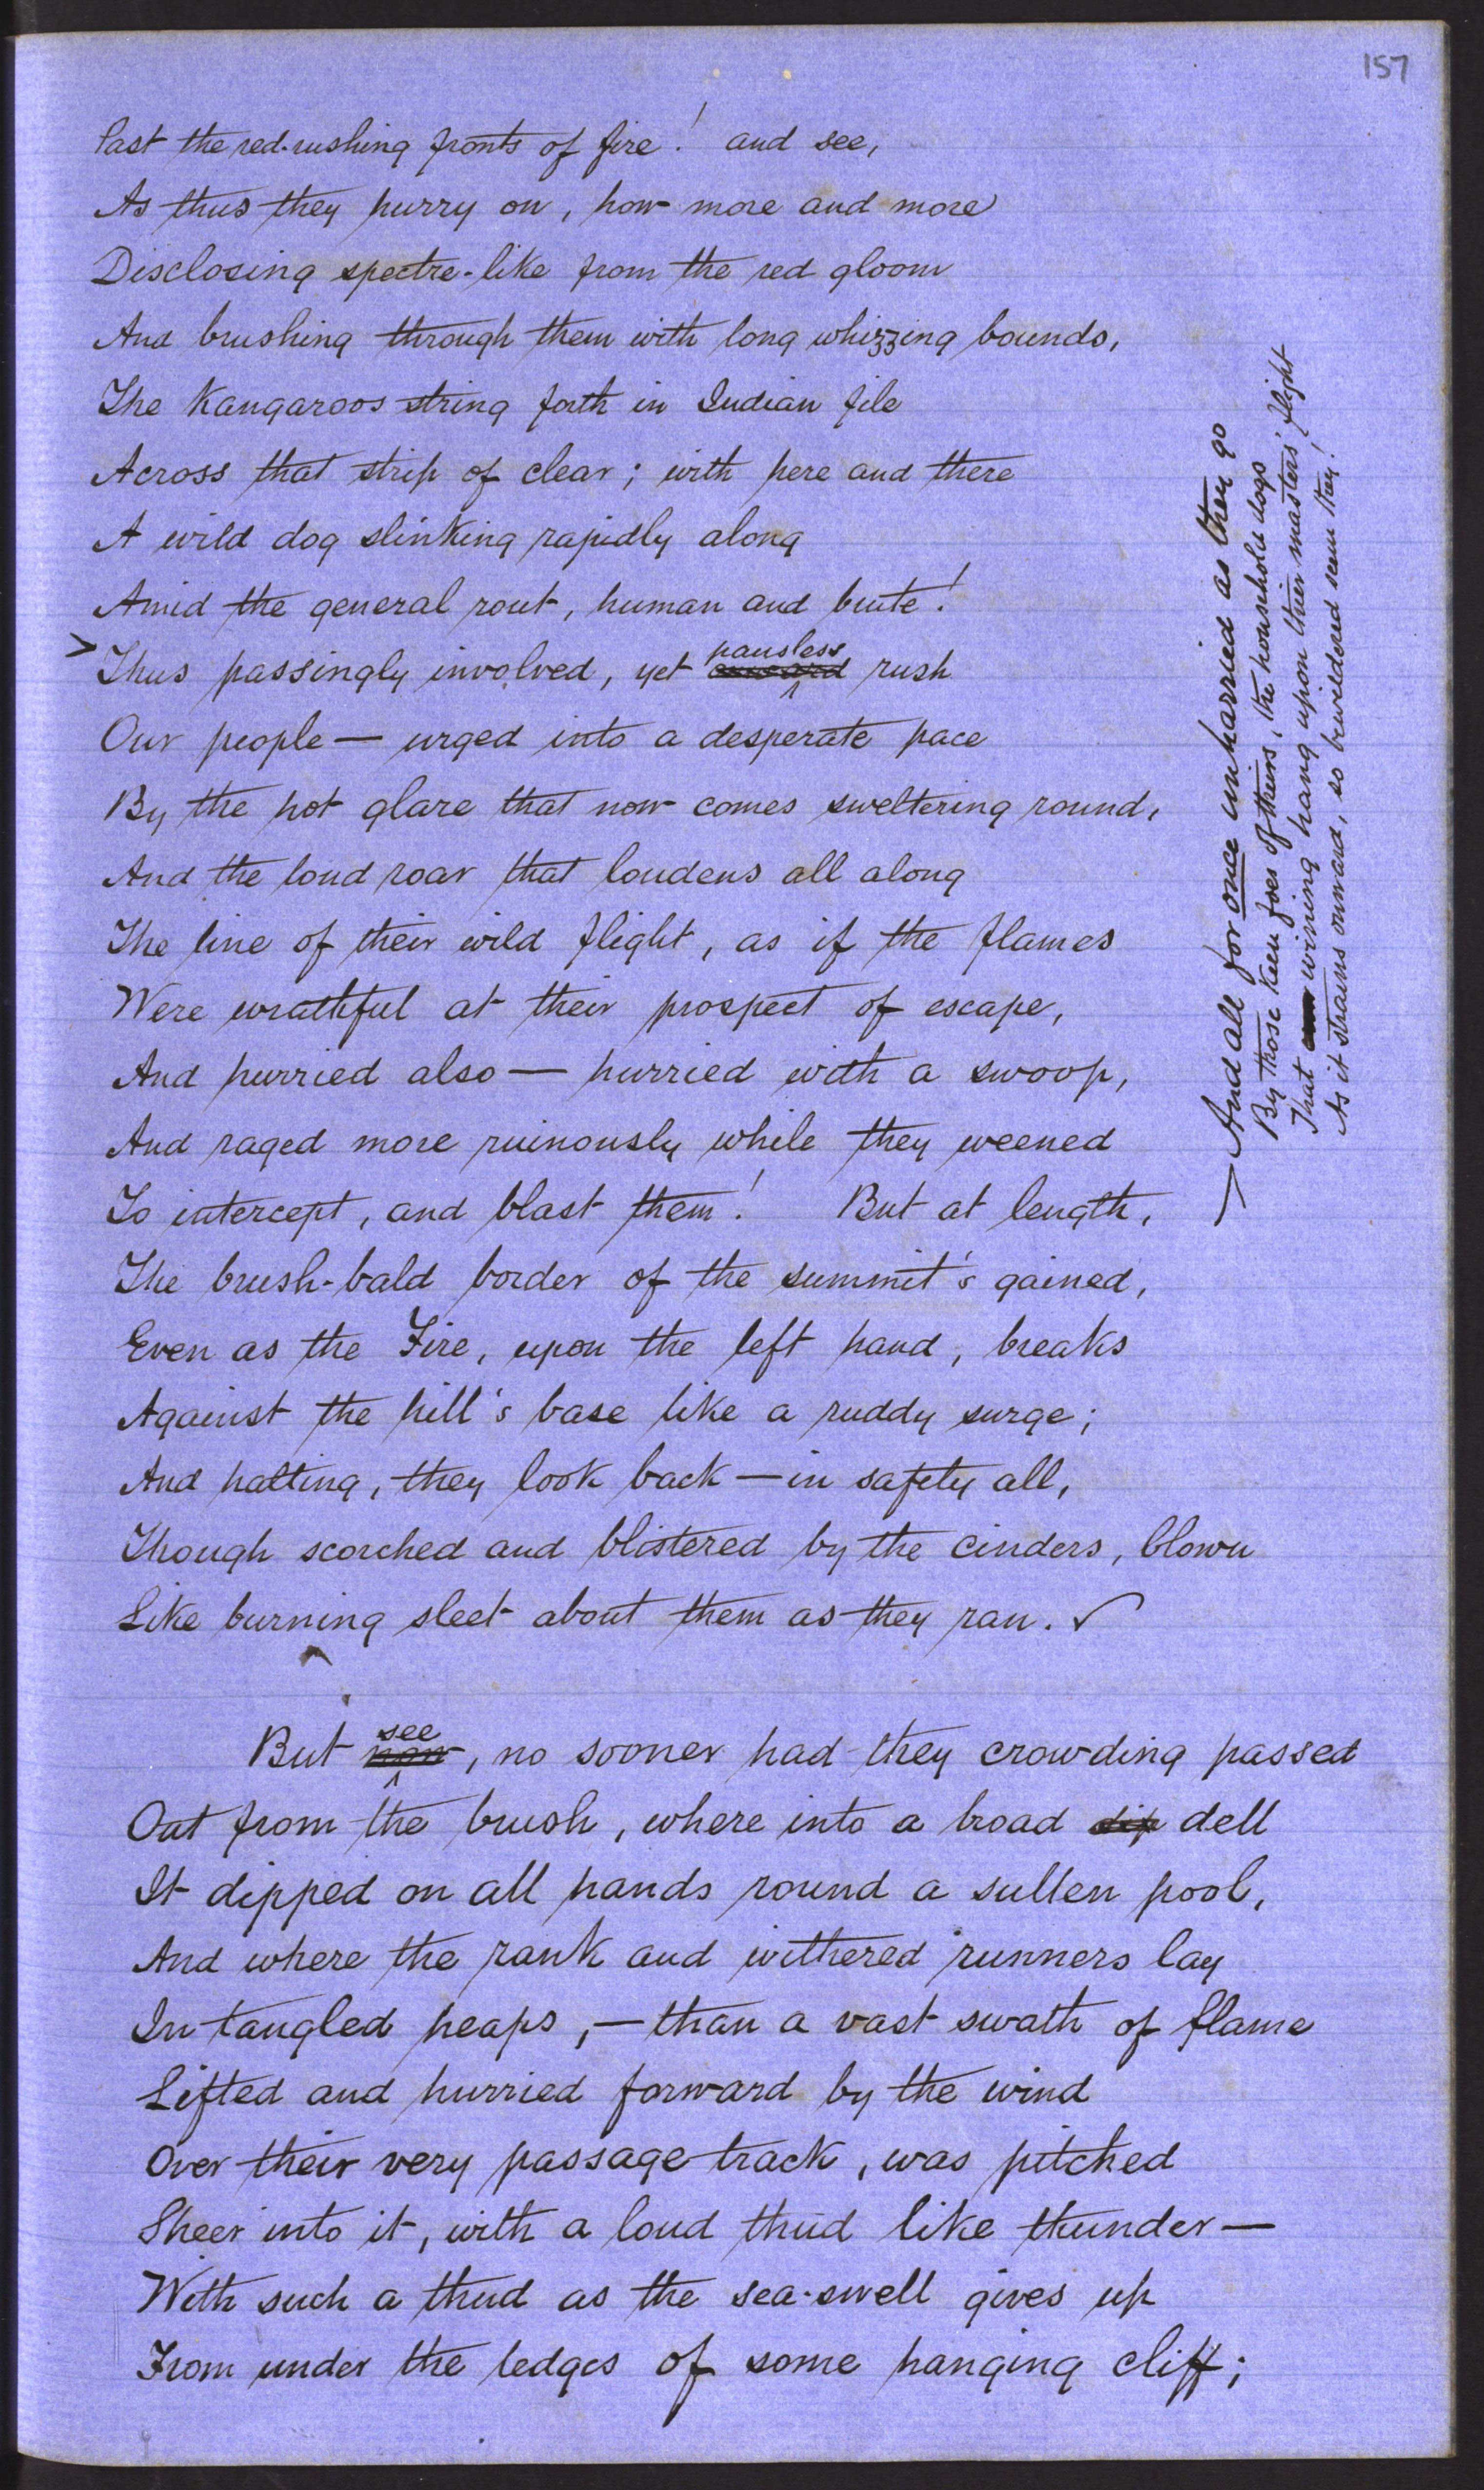 157
Past the red-rushing fronts of fire! and see,
As thus they hurry on, how more and more
Disclosing spectre-like from the red gloom
And brushing through them with long whizzing bounds,
The Kangaroos string forth in Indian file
Across that strip of clear; with here and there
A wild dog slinking rapidly along
Amid the general rout, human and brute!
> Thus passingly involved, yet onward pauseless rush
Our people — urged into a desperate pace
By the hot glare that now comes sweltering round,
And the loud roar that loudens all along
The line of their wild flight, as if the flames
Were wrathful at their prospect of escape,
And hurried also — hurried with a swoop,
And raged more ruinously while they weened
To intercept, and blast them! But at length,
The brush-bald border of the summit's gained,
Even as the Fire, upon the left hand, breaks
Against the hill's base like a ruddy surge;
And halting, they look back — in safety all,
Though scorched and blistered by the cinders, blown
Like burning sleet about them as they ran. ✓
But now see, no sooner had they crowding passed
Out from the brush, where into a broad dip dell
It dipped on all hands round a sullen pool,
And where the rank and withered runners lay
In tangled heaps, — than a vast swath of flame
Lifted and hurried forward by the wind
Over their very passage track, was pitched
Sheer into it, with a loud thud like thunder —
With such a thud as the sea-swell gives up
From under the ledges of some hanging cliff;
> And all for once unharried as they go
By those keen foes of theirs, the household dogs
That wining hang upon their masters' flight
As it strains onward, so bewildered seem they!